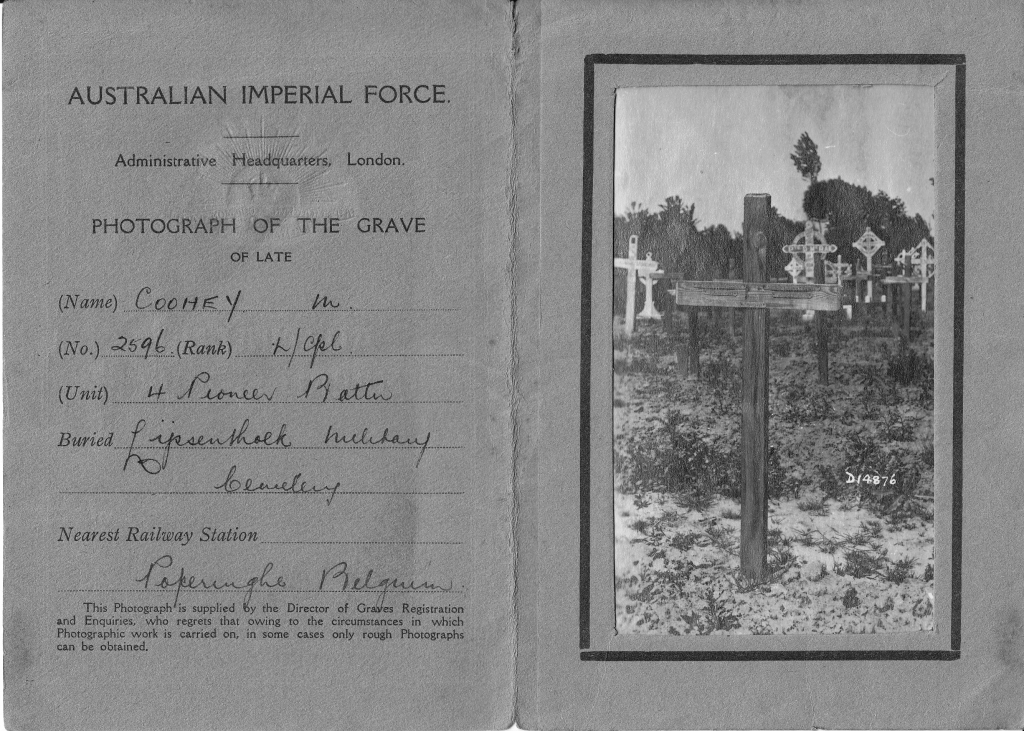 AUSTRALIAN IMPERIAL FORCE.
Administrative Headquarters, London.
PHOTOGRAPH OF THE GRAVE
OF LATE
(Name) COOHEY M.
(No.) 2596 (Rank) L/Cpl.
(Unit) 4 Pioneer Battn
Buried Lijssenthoek Military
Cemetery
Nearest Railway Station
Poperinghe Belgium.
This Photograph is supplied by the Director of Graves Registration
and Enquiries, who regrets that owing to the circumstances in which
Photographic work is carried on, in some cases only rough Photographs
can be obtained.
D14876